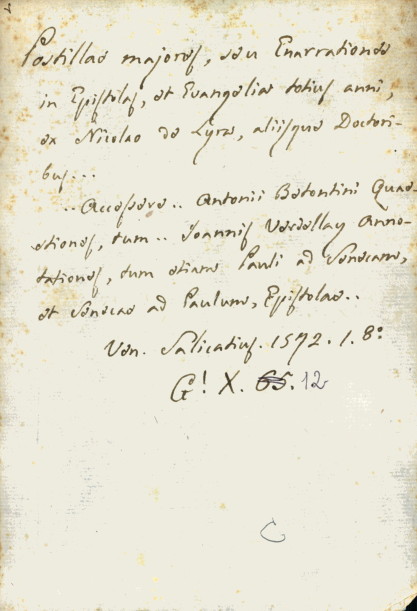 Postillae majores, seu Enarrationes
in Epistolas, et Evangelia totius anni,
ex Nicolao de Lyra, aliisque Doctori-
bus...
.. Accessere .. Antonii Betontini Quae-
stiones, tum .. Joannis Verdellay Anno-
tationes, tum etiam Pauli ad Senecam,
et Senecae ad Paulum, Epistolae..
Ven. Salicatius. 1572. 1. 8:
G! X. 65. 12
C